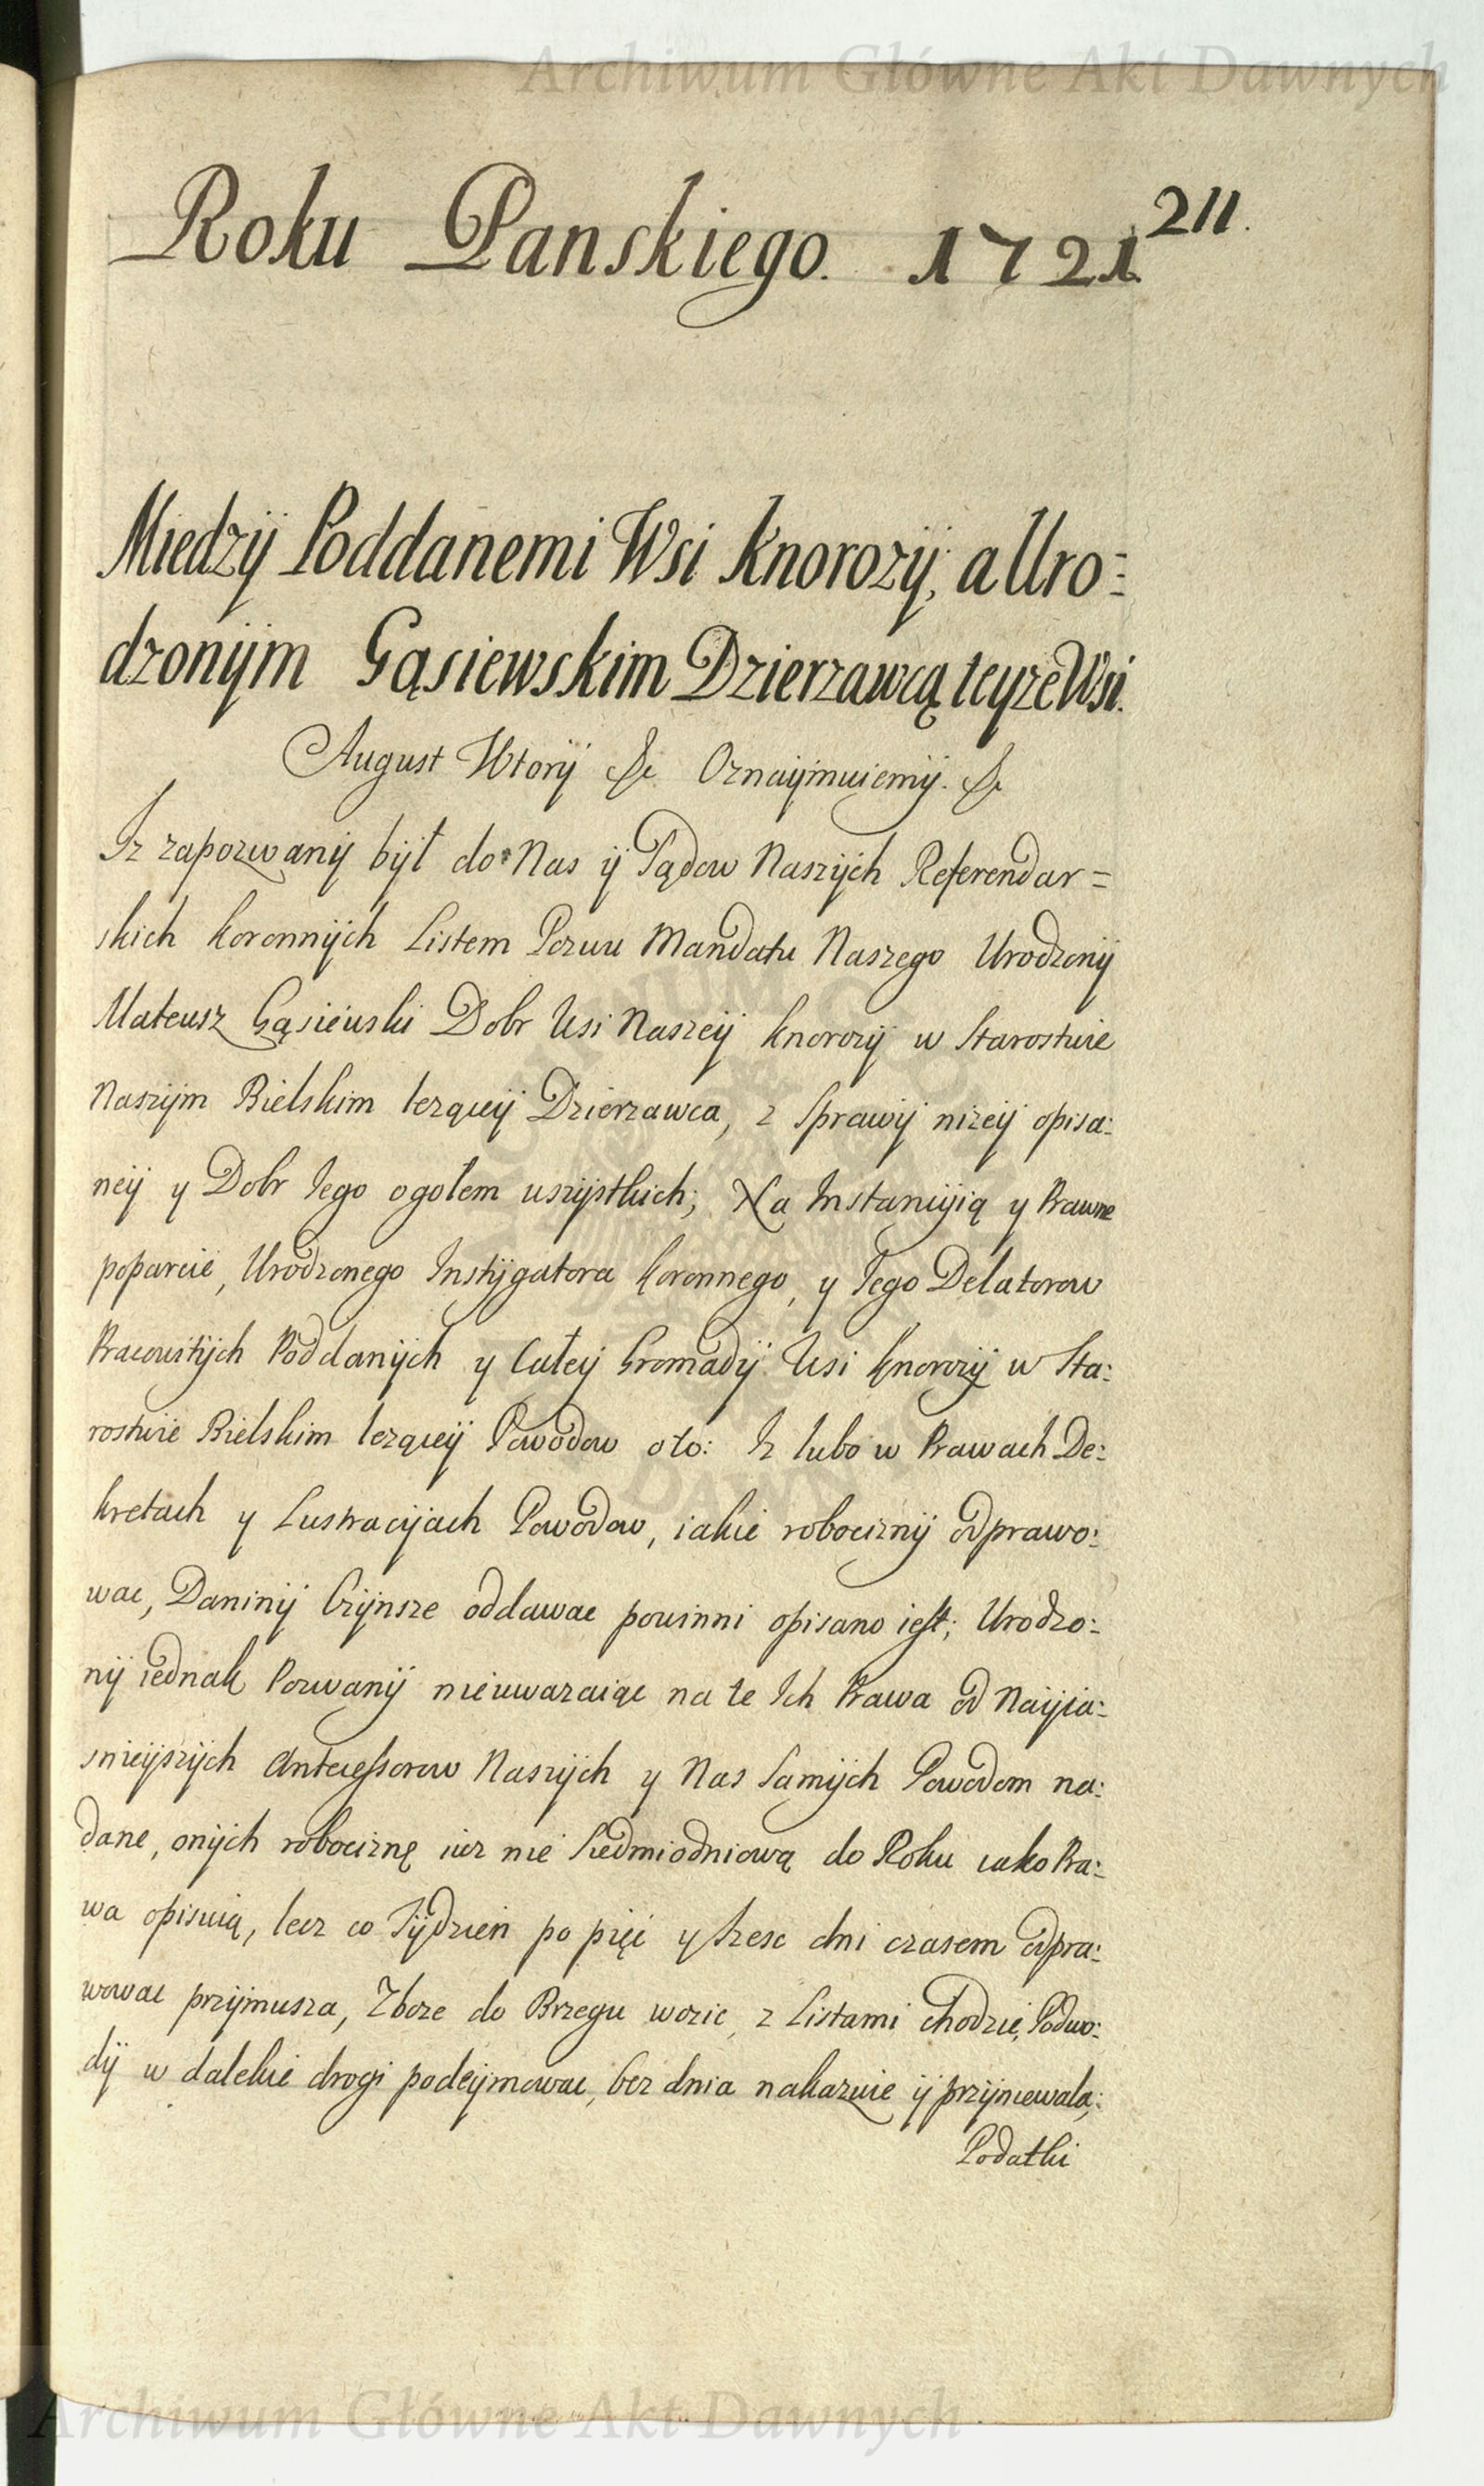 Archiwum Główne Akt Dawnych
211.
Roku Panskiego. 1721
Miedzÿ Poddanemi Wsi Knorozÿ, a Uro=
dzonÿm Gąsiewskim Dzierzawcą teyze Wsi.
August Wtorÿ &c Oznaÿmuiemÿ. &c
Iz zapozwanÿ bÿł do Nas ÿ Sądow Naszÿch Referendar=
skich koronnÿch Listem Pozwu Mandatu Naszego Urodzonÿ
Mateusz Gąsiewski Dobr Wsi Naszeÿ Knorozÿ w Starostwie
Naszÿm Bielskim lezącÿ Dzierzawca, z Sprawÿ nizeÿ opisa:
neÿ y Dobr Iego ogołem wszÿstkich; Na Instancÿią y Prawne
poparcie, Urodzonego Instÿgatora koronnego, y Iego Delatorow
Pracowitÿch Poddanÿch y Całeÿ Gromadÿ Wsi Knorozÿ w Sta:
rostwie Bielskim leząceÿ Powodow oto: Iz lubo w Prawach De:
kretach y Lustracÿiach Powodow, iakie robociznÿ odprawo:
wac, Daninÿ Czÿnsze oddawac powinni opisano iest; Urodzo:
nÿ iednak Pozwanÿ nieuwazaiąc na te Ich Prawa od Naÿia:
snieÿszÿch Antecessorow Naszÿch y Nas Samÿch Powodom na:
dane, onÿch robociznę iuz nie Siedmiodniową do Roku iako Pra:
wa opisuią, lecz co Tÿdzien po pięc y szesc dni czasem odpra:
wowac przÿmusza, Zboze do Brzegu wozic, z Listami chodzic, Podwo:
dÿ w dalekie drogi podeÿmowac, bez dnia nakazuie ÿ przÿniewala;
Podatki
Archiwum Główne Akt Dawnych